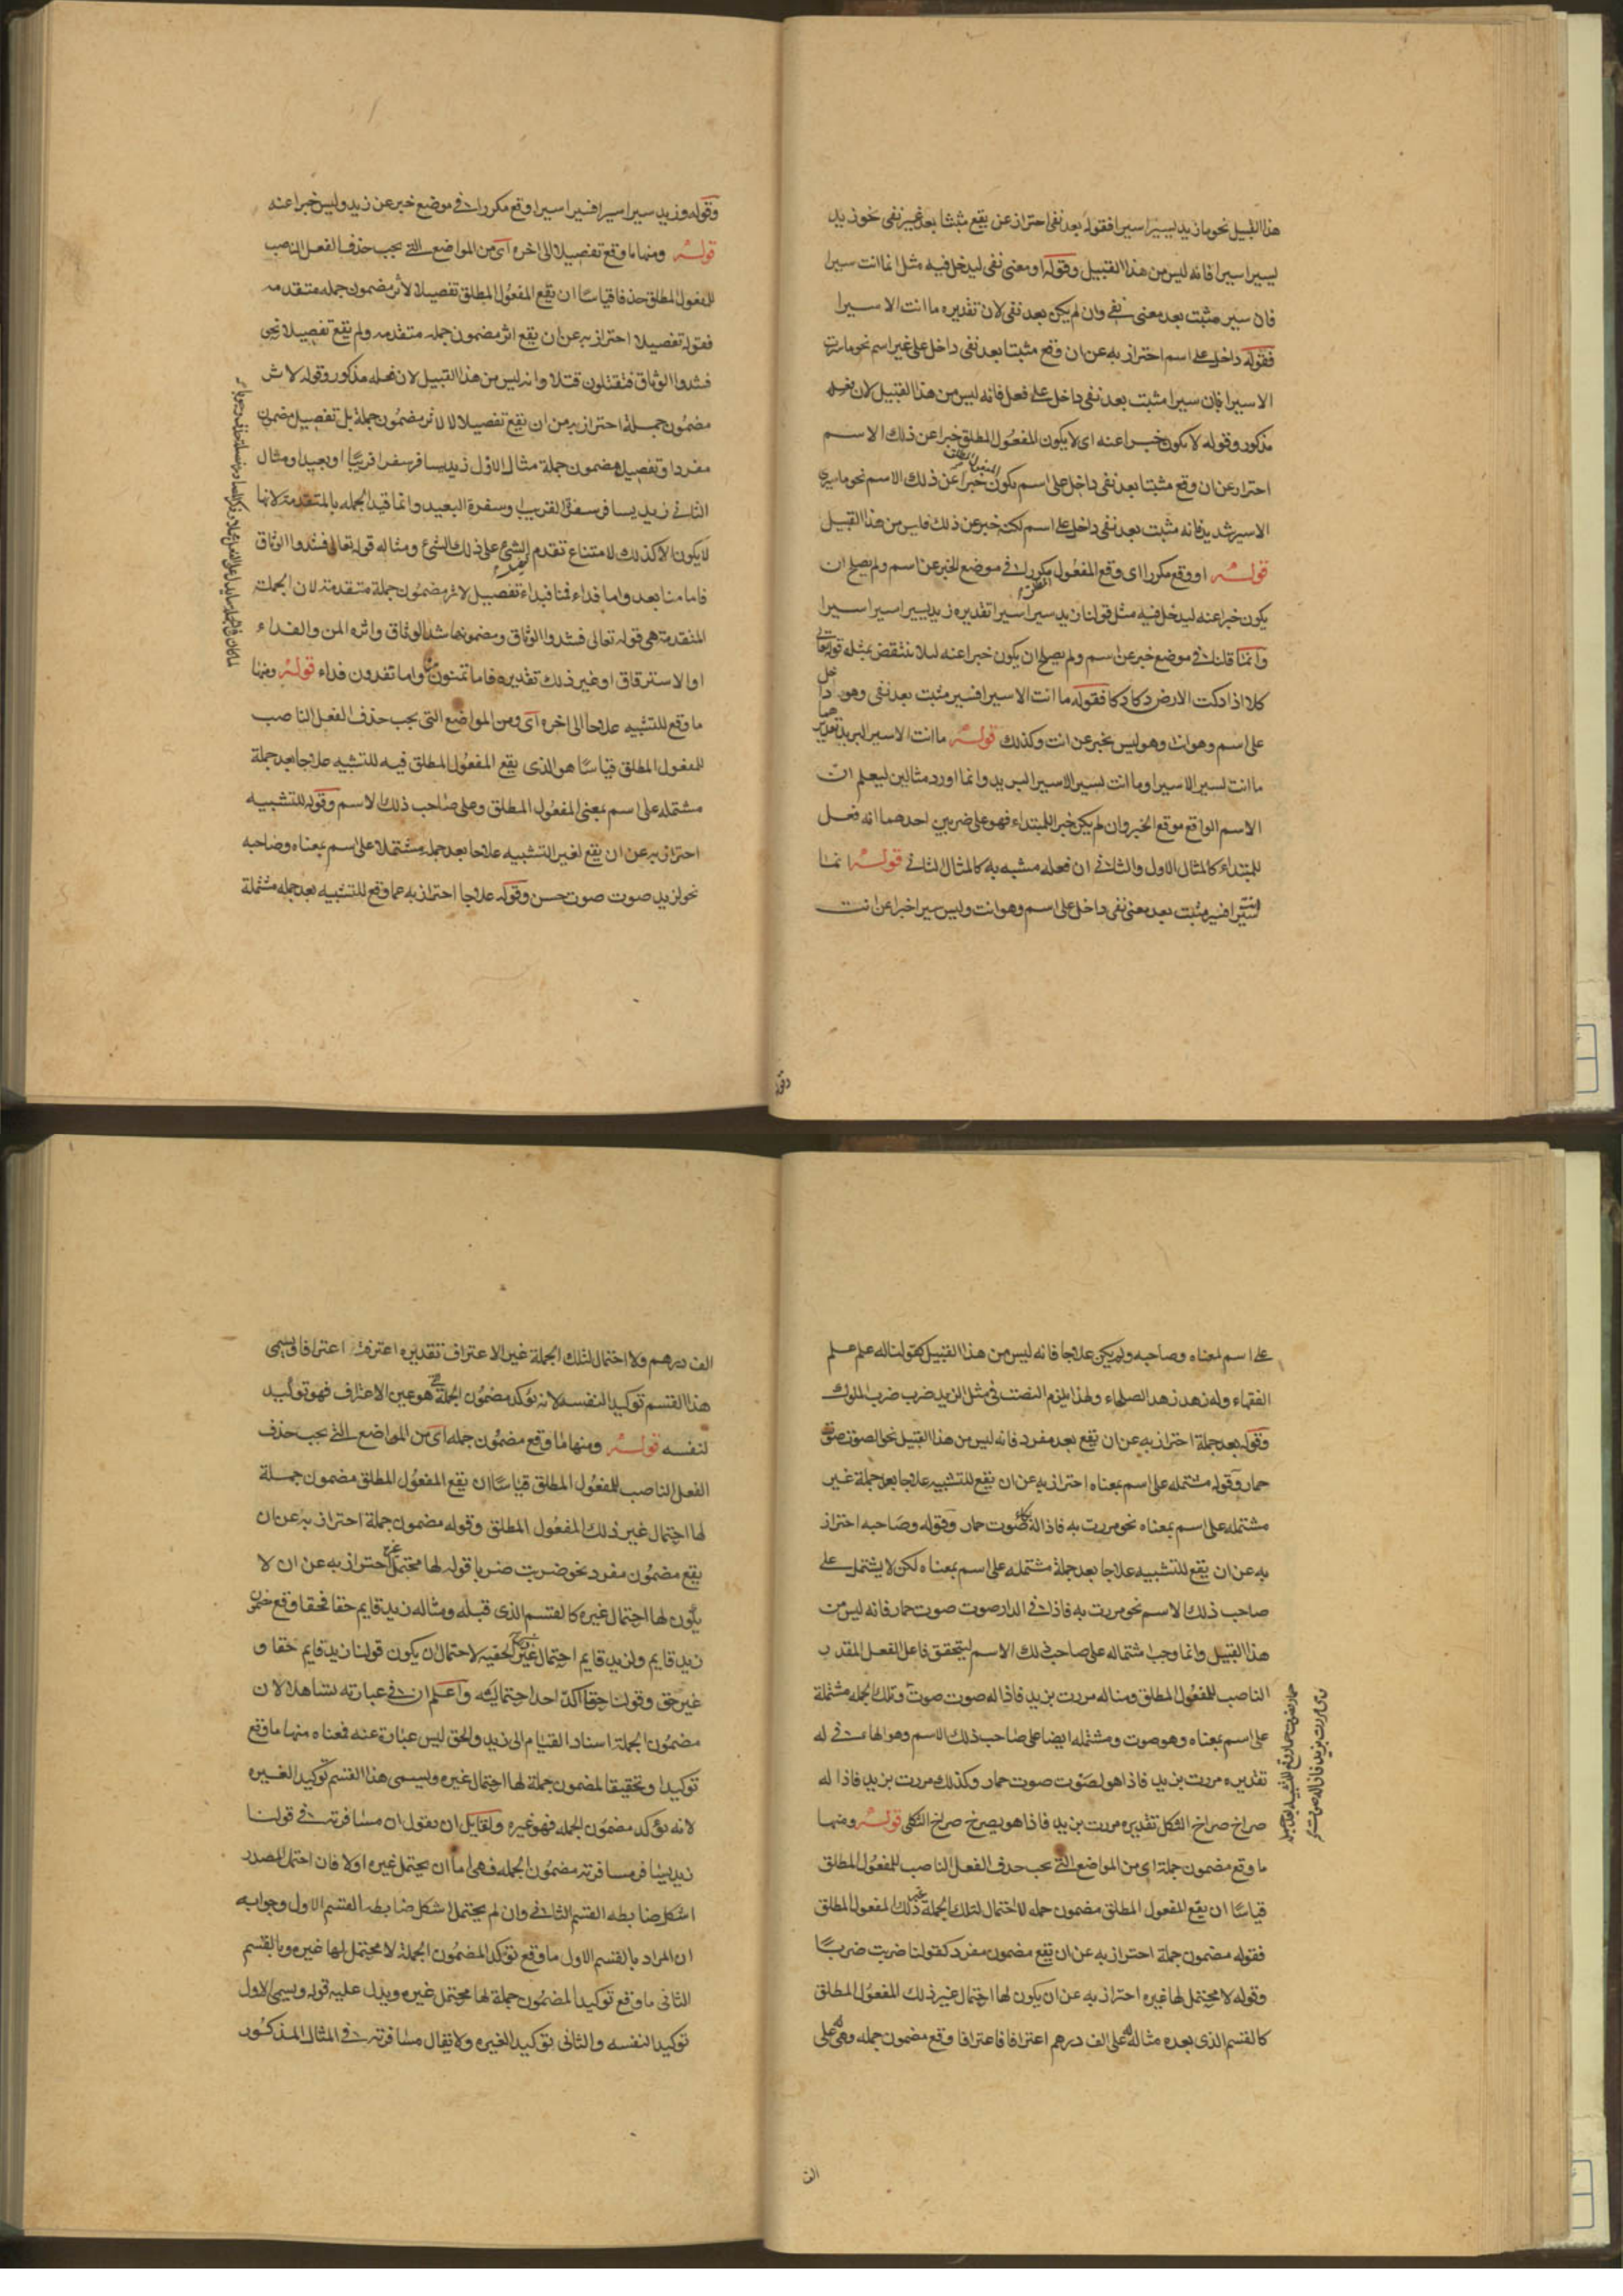 هذا القبيل نحو ما زيد يسير اسيرا فقوله بعد نفى احتراز عن يقع مثبتا بعد غير نفى نحو زيد
يسير اسيرا فانه ليس من هذا القبيل وقوله او معنى نفى ليدخل فيه مثل انما انت سيرا
فان سير مثبت بعد معنى نفى وان لم يكن بعد نفى لان تقديره ما انت الا سيرا
فقوله داخل على اسم احتراز به عن ان وقع مثبتا بعد نفى داخل على غير اسم نحو ما سرت
الا سيرا فان سيرا مثبت بعد نفى داخل على فعل فانه ليس من هذا القبيل لان فعله
مذكور وقوله لا يكون خبرا عنه اى لا يكون المفعول المطلق خبرا عن ذلك الاسم
احتراز عن ان وقع مثبتا بعد نفى داخل على اسم يكون المفعول المطلق خبرا عن ذلك الاسم نحو ما سيرى
الا سير شديد فانه مثبت بعد نفى داخل على اسم لكنه خبر عن ذلك فليس من هذا القبيل
قوله او وقع مكررا اى وقع المفعول المطلق مكررا فى موضع الخبر عن اسم ولم يصلح ان
يكون خبرا عنه ليدخل فيه مثل قولنا زيد سيرا سيرا تقديره زيد يسير اسيرا سيرا
وانما قلنا فى موضع خبر عن اسم ولم يصلح ان يكون خبرا عنه ليلا ينتقض بمثله قوله تعالى
كلا اذا دكت الارض دكا دكا فقوله ما انت الا سيرا فسير مثبت بعد نفى وهو ما داخل
على اسم وهو انت وهو ليس بخبر عن انت وكذلك قوله ما انت الا سير البريد تقديرهما
ما انت تسير الا سيرا وما انت تسير الا سير البريد وانما اورد مثالين ليعلم ان
الاسم الواقع موقع الخبر وان لم يكن خبرا للمبتداء فهو على ضربين احدهما انه فعل
للمبتداء كالمثال الاول والثانى ان فعله مشبه به كالمثال الثانى قوله انما
انت سيرا فسير مثبت بعد معنى نفى داخل على اسم وهو انت وليس سيرا خبرا عن انت
وقوله
وقوله وزيد سيرا سيرا فسيرا سيرا وقع مكررا فى موضع خبر عن زيد وليس خبرا عنه
قوله ومنها ما وقع تفصيلا الى اخره اى من المواضع التى يجب حذف الفعل الناصب
للمفعول المطلق حذفا قياسا ان يقع المفعول المطلق تفصيلا لاثر مضمون جمله متقدمه
فقوله تفصيلا احتراز به عن ان يقع اثر مضمون جمله متقدمه ولم يقع تفصيلا نحو
فشدوا الوثاق فتقتلون قتلا وانه ليس من هذا القبيل لان فعله مذكور وقوله لاثر
مضمون جملة احتراز به من ان يقع تفصيلا لا لاثر مضمون جملة بل تفصيل مضمون
مفرد او تفصيل مضمون جملة مثال الاول زيد يسافر سفرا قريبا او بعيدا ومثال
الثانى زيد يسافر سفرة القريب او سفرة البعيد وانما قيد الجمله بالمتقدمة لانها
لا يكون الا كذلك لامتناع تقدم تفصيل الشئ على ذلك الشئ ومثاله قوله تعالى فشدوا الوثاق
فاما منا بعد واما فداء فمنا فداء تفصيل لاثر مضمون جملة متقدمة لان الجملة
المتقدمة هى قوله تعالى فشدوا الوثاق ومضمونها شد الوثاق واثره المن والفداء
او الاسترقاق او غير ذلك تقديره فاما تمنون منا واما تفدون فداء قوله ومنها
ما وقع للتشبيه علاجا الى اخره اى ومن المواضع التى يجب حذف الفعل الناصب
للمفعول المطلق قياسا هو الذى يقع المفعول المطلق فيه للتشبيه علاجا بعد جملة
مشتمله على اسم بمعنى المفعول المطلق وعلى صاحب ذلك الاسم وقوله للتشبيه
احتراز به عن ان يقع لغير التشبيه علاجا بعد جمله مشتملا على اسم بمعناه وصاحبه
نحو لزيد صوت صوت حسن وقوله علاجا احتراز به عما وقع للتشبيه بعد جمله مشتملة
على اسم بمعناه وصاحبه ولم يكن علاجا فانه ليس من هذا القبيل كقولنا له علم علم
الفقهاء وله زهد زهد الصلحاء ولهذا يلزم النصب فى مثل لزيد ضرب ضرب الملوك
وقوله بعد جملة احتراز به عن ان يقع بعد مفرد فانه ليس من هذا القبيل نحو الصوت صوت
حمار وقوله مشتمله على اسم بمعناه احتراز به عن ان يقع للتشبيه علاجا بعد جملة غير
مشتمله على اسم بمعناه نحو مررت به فاذا له بكاء صوت حمار وقوله وصاحبه احتراز
به عن ان يقع للتشبيه علاجا بعد جملة مشتمله على اسم بمعناه لكن لا يشتمل على
صاحب ذلك الاسم نحو مررت به فاذا فى الدار صوت صوت حمار فانه ليس من
هذا القبيل وانما وجب اشتماله على صاحب ذلك الاسم ليتحقق فاعل الفعل المقدر
الناصب للمفعول المطلق ومثاله مررت بزيد فاذا له صوت صوت وتلك الجمله مشتملة
على اسم بمعناه وهو صوت ومشتمله ايضا على صاحب ذلك الاسم وهو الهاء فى له
تقديره مررت بزيد فاذا هو لصوت صوت حمار وكذلك مررت بزيد فاذا له
صراخ صراخ الثكلى تقديره مررت بزيد فاذا هو يصرخ صراخ الثكلى قوله ومنها
ما وقع مضمون جملة اى من المواضع التى يجب حذف الفعل الناصب للمفعول المطلق
قياسا ان يقع المفعول المطلق مضمون جمله لا احتمال لتلك الجملة غير ذلك المفعول المطلق
فقوله مضمون جملة احتراز به عن ان يقع مضمون مفرد كقولنا ضربت ضربا
وقوله لا محتمل لها غيره احتراز به عن ان يكون لها احتمال غير ذلك المفعول المطلق
كالقسم الذى بعده مثاله له على الف درهم اعترافا فاعترافا وقع مضمون جمله وهى له على
الف
الف درهم ولا احتمال لتلك الجملة غير الاعتراف تقديره اعترفت اعترافا ويسمى
هذا القسم توكيدا لنفسه لانه يؤكد مضمون الجملة وهو عين الاعتراف فهو توكيد
لنفسه قوله ومنها ما وقع مضمون جمله اى من المواضع التى يجب حذف
الفعل الناصب للمفعول المطلق قياسا ان يقع المفعول المطلق مضمون جملة
لها احتمال غير ذلك المفعول المطلق وقوله مضمون جملة احتراز به عن ان
يقع مضمون مفرد نحو ضربت ضربا قوله لها محتمل غيره احتراز به عن ان لا
يكون لها احتمال غيره كالقسم الذى قبله ومثاله زيد قايم حقا فحقا وقع مضمون
زيد قايم ولزيد قايم احتمال غير الحقيه لاحتمال ان يكون قولنا زيد قايم حقا و
غير حق وقولنا حقا اكد احد احتماليه واعلم ان فى عبارته تساهلا لان
مضمون الجملة اسناد القيام الى زيد والحق ليس عبارة عنه فمعناه منها ما وقع
توكيدا وتحقيقا لمضمون جملة لها احتمال غيره ويسمى هذا القسم توكيدا لغيره
لانه يؤكد مضمون الجمله فهو غيره ولقايل ان يقول ان مسافرته فى قولنا
زيد يسافر مسافرته مضمون الجمله فهى اما ان يحتمل غيره اولا فان احتمل المصدر
اشكل ضابطه القسم الثانى وان لم يحتمل اشكل ضابطه القسم الاول وجوابه
ان المراد بالقسم الاول ما وقع توكيدا لمضمون الجملة لا محتمل لها غيره وبالقسم
الثانى ما وقع توكيدا لمضمون جملة لها محتمل غيره ويدل عليه قوله ويسمى الاول
توكيدا لنفسه والثانى توكيدا لغيره ولا يقال مسافرته فى المثال المذكور